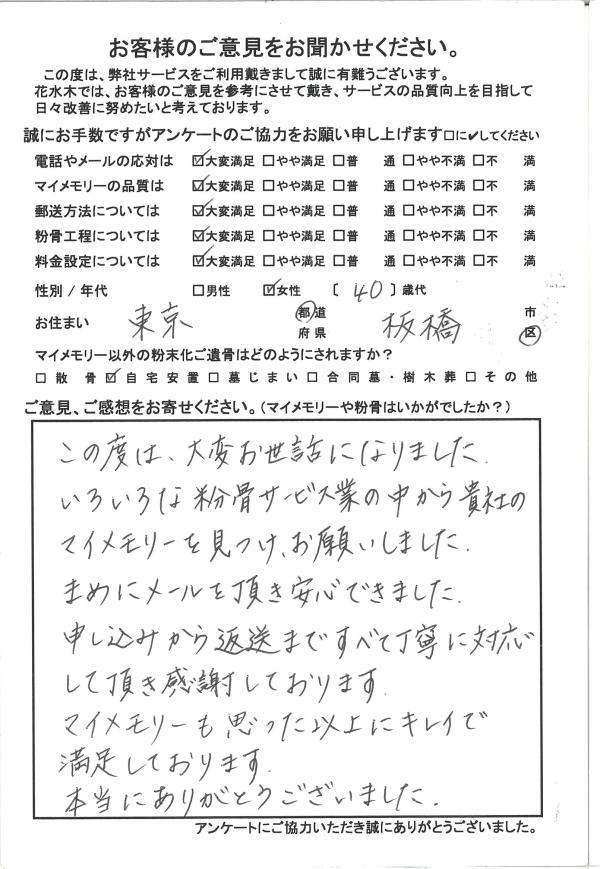 お客様のご意見をお聞かせください。
この度は、弊社サービスをご利用戴きまして誠に有難うございます。
花水木では、お客様のご意見を参考にさせて戴き、サービスの品質向上を目指して
日々改善に努めたいと考えております。
誠にお手数ですがアンケートのご協力をお願い申し上げます□に✔してください
電話やメールの応対は ☑大変満足 □やや満足 □普 通 □やや不満 □不 満
マイメモリーの品質は ☑大変満足 □やや満足 □普 通 □やや不満 □不 満
郵送方法については ☑大変満足 □やや満足 □普 通 □やや不満 □不 満
粉骨工程については ☑大変満足 □やや満足 □普 通 □やや不満 □不 満
料金設定については ☑大変満足 □やや満足 □普 通 □やや不満 □不 満
性別 / 年代 □男性 ☑女性 〔 40 〕歳代
お住まい 東京 都道府県 板橋 市区
マイメモリー以外の粉末化ご遺骨はどのようにされますか?
□散 骨 ☑自宅安置 □墓じまい □合同墓・樹木葬 □その他
ご意見、ご感想をお寄せください。(マイメモリーや粉骨はいかがでしたか?)
この度は、大変お世話になりました.
いろいろな粉骨サービス業の中から貴社の
マイメモリーを見つけ、お願いしました.
まめにメールを頂き安心できました.
申し込みから返送まですべて丁寧に対応
して頂き感謝しております.
マイメモリーも思った以上にキレイで
満足しております.
本当にありがとうございました.
アンケートにご協力いただき誠にありがとうございました。